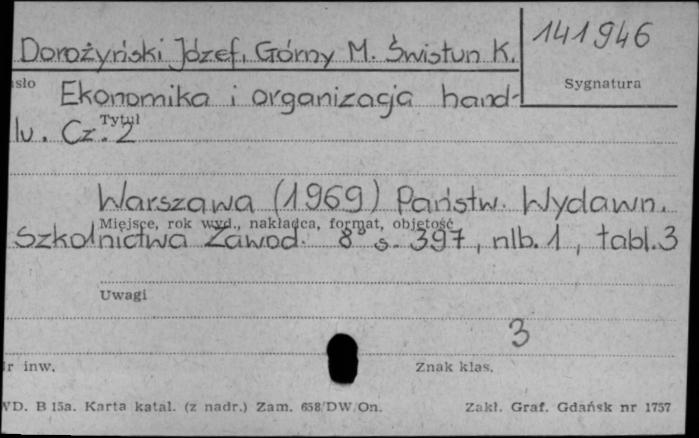 141946
Dorożyński Józef, Górny M. Świstun K.
Sygnatura
sło
Ekonomika i organizacja hand-
Tytuł
lu. Cz. 2
Warszawa (1969) Państw. Wydawn.
Miejsce, rok wyd., nakładca, format, objętość
Szkolnictwa Zawod. 8 s. 397, nlb. 1, tabl. 3
Uwagi
3
r inw.
Znak klas.
VD. B 15a. Karta katal. (z nadr.) Zam. 658/DW/On.
Zakł. Graf. Gdańsk nr 1757